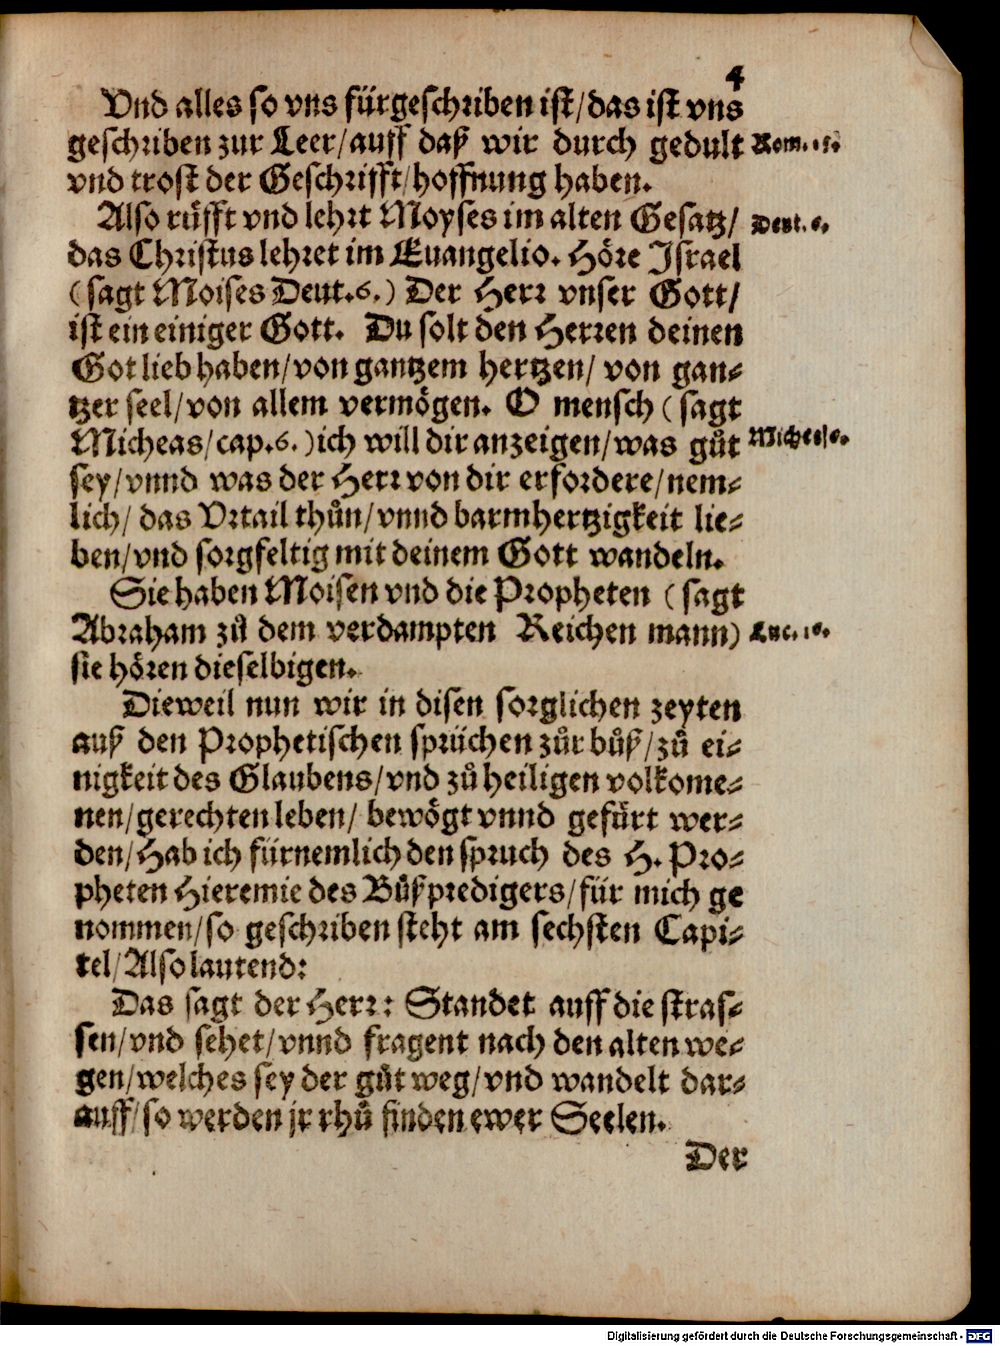 4
Vnd alles so vns fürgeschriben ist/das ist vns
geschriben zur Leer/auff daß wir durch gedult Rom. 15.
vnd trost der Geschrifft/hoffnung haben.
Also rüfft vnd lehrt Moyses im alten Gesatz/ Deut. 6.
das Christus lehret im Euangelio. Höre Israel
(sagt Moises Deut.6.) Der Herr vnser Gott/
ist ein einiger Gott. Du solt den Herren deinen
Got lieb haben/von gantzem hertzen/ von gan-
tzer seel/von allem vermögen. O mensch (sagt
Micheas/cap.6.)ich will dir anzeigen/was gůt Micheæ 6.
sey/vnnd was der Herr von dir erfordere/nem-
lich/ das Vrtail thůn/vnnd barmhertzigkeit lie-
ben/vnd sorgfeltig mit deinem Gott wandeln.
Sie haben Moisen vnd die Propheten (sagt
Abraham zů dem verdampten Reichen mann) Luc. 16.
sie hören dieselbigen.
Dieweil nun wir in disen sorglichen zeyten
auß den Prophetischen sprüchen zůr bůß/zů ei-
nigkeit des Glaubens/vnd zů heiligen volkome-
nen/gerechten leben/ bewögt vnnd gefürt wer-
den/Hab ich fürnemlich den spruch des H. Pro-
pheten Hieremie des Bůßpredigers/für mich ge
nommen/so geschriben steht am sechsten Capi-
tel/Also lautend:
Das sagt der Herr: Standet auff die stras-
sen/vnd sehet/vnnd fragent nach den alten we-
gen/welches sey der gůt weg/vnd wandelt dar-
auff/so werden jr rhů finden ewer Seelen.
Der
Digitalisierung gefördert durch die Deutsche Forschungsgemeinschaft - DFG